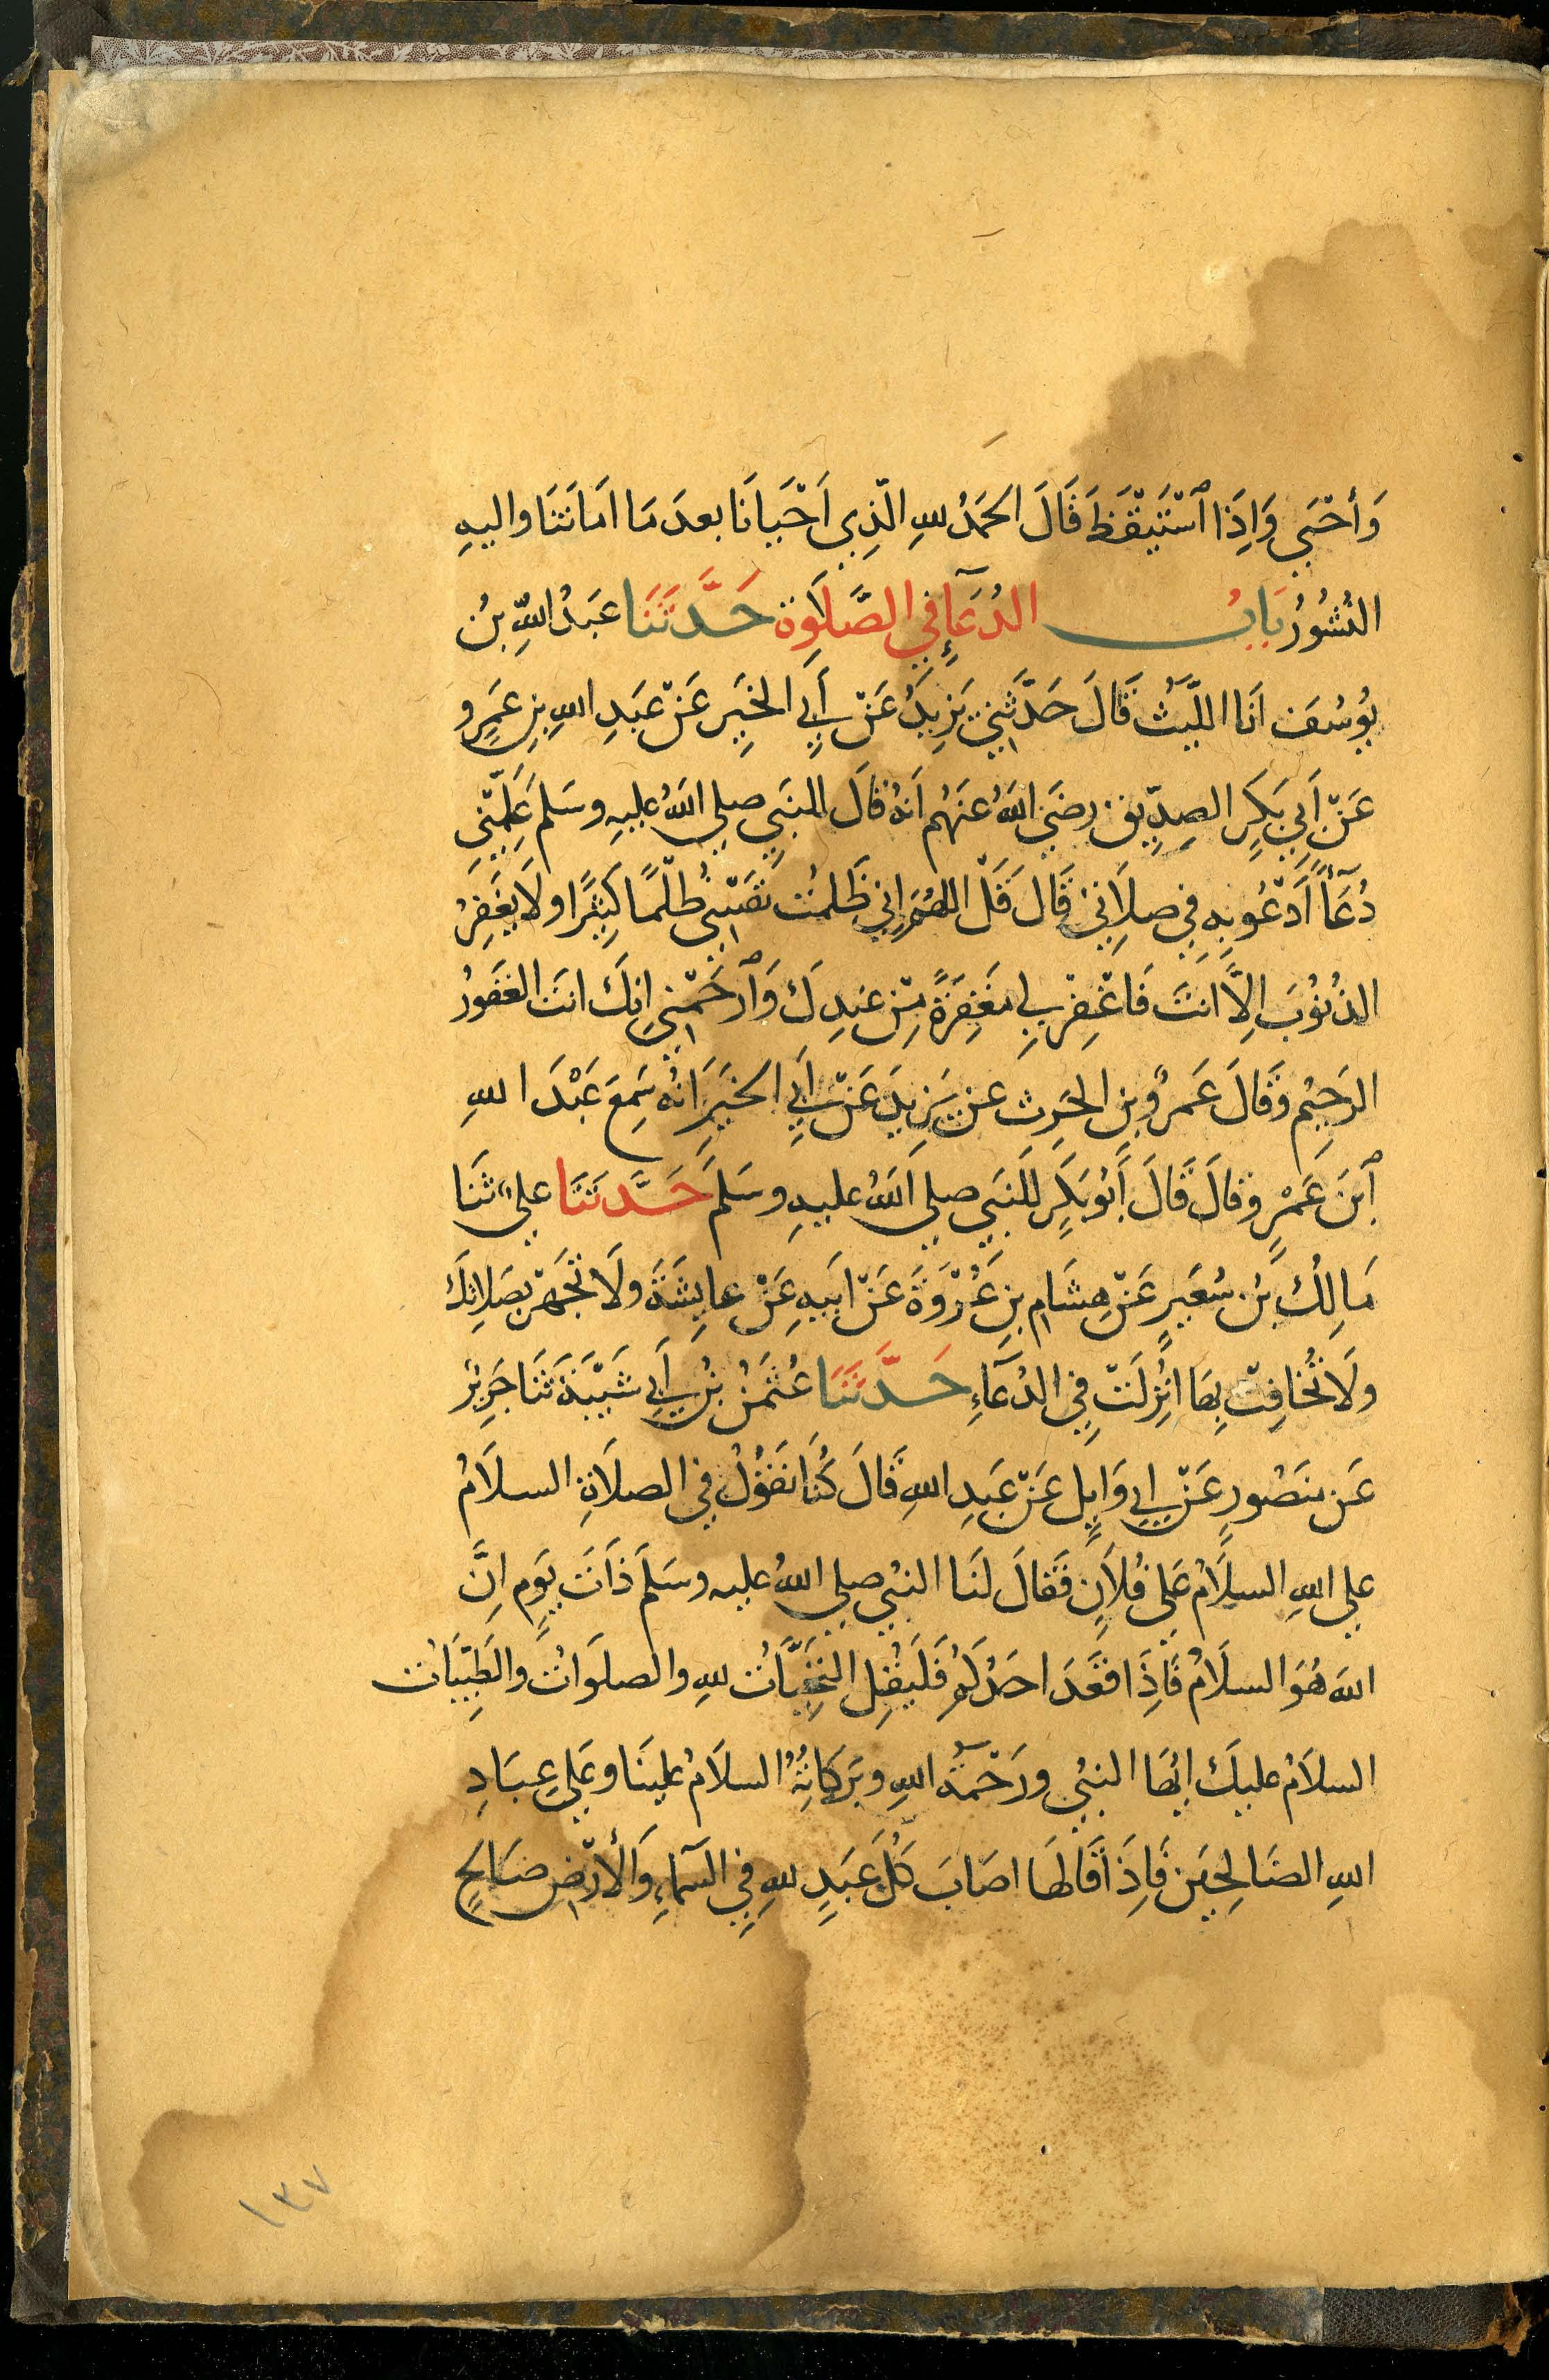 وَأَحْيَي وَاِذَا ٱسْتَيْقَظَ قَالَ الحَمْدُ للهِ الَّذِي اَحْيَانَا بعدَ مَا امَاتَنَا واليهِ
النُشُورُ بَابُ الدُعَآءِ فِي الصَّلَوة حَدَّثَنَا عَبدُ اللّهِ بنُ
يُوسُفَ انَا اللّيثُ قَالَ حَدّثَنِي يَزِيدُ عَنْ أَبِي الخَيرِ عَنْ عَبَدِ اللهِ بنِ عَمرٍو
عَنْ اَبِي بَكرٍ الصِدِّيقِ رضَيَ اللهُ عنَهُم اَنهُ قالَ للنبَي صلي اللهُ عليهِ وسَلم عَلِّمْنِي
دُعَآءً اَدْعُو بِهِ فِي صلاَتِي قَالَ قُلْ اللهُمَ اِنِي ظَلمتُ نَفسْي ظُلْمًا كَثيرًا ولَا يغَفِرُ
الذُنُوبَ اِلاَّ انتَ فَاغْفِرْ لِي مَغفِرَةً مِّنْ عندِكَ وَٱرحَمْنِي اِنكَ انتَ الغَفَورُ
الرَحِيُم وَقَالَ عَمرُو بن الحَرِث عن يَزِيدَ عَنْ اَبِي الخيَرِ اَنهُ سَمِعَ عَبْدَ اللهِ
ٱبنَ عَمْرٍو قالَ قَالَ أَبُو بَكرٍ للنبَي صلي اللهُ عليهِ وسَلمَ حَدَّثَنَا علي ثنَا
مَالِكُ بنُ سُعَيرٍ عَنْ هِشَامِ بنِ عُرْوَةَ عَنْ ابَيهِ عَنْ عايِشَةَ ولَا تَجَهرْ بصَلاتِكَ
ولَا تُخَافِتْ بِهَا اُنزِلَتْ فِي الدُعَآءِ حَدَّثَنَا عُثمَنُ بْنُ أَبِي شَيْبَةَ ثَنَا جَرِيرُ
عَن منصُورٍ عَنْ ابِي وَايِلٍ عَنْ عَبدِ اللهِ قَالَ كُنَا نَقُولُ فِي الصلاَةِ السلاَمُ
علي اللهِ السلاَمُ عَلي فُلاَنٍ فَقالَ لنَا النبُي صلي اللهُ عليه وسَلمَ ذَاتَ يَومٍ اِنَّ
اللهَ هُوَ السلاَمُ فَاِذَا قَعَدَ احَدُكُم فَلَيقُل التَحِيَّاتُ للهِ والصلَوَاتُ والطَيِّبَاتُ
السلاَمُ عليكَ ايُهَا النبُي ورَحْمَةُ اللهِ وبَرَكَاتُهُ السلاَمُ علينَا وعَلي عِبَادِ
اللهِ الصَالِحِينَ فَاِذَا قَالهَا اصَابَ كُلَّ عَبَدٍ للهِ فِي السَّمآءِ وَالأَرْضِ صَالحٍ
١٣٧